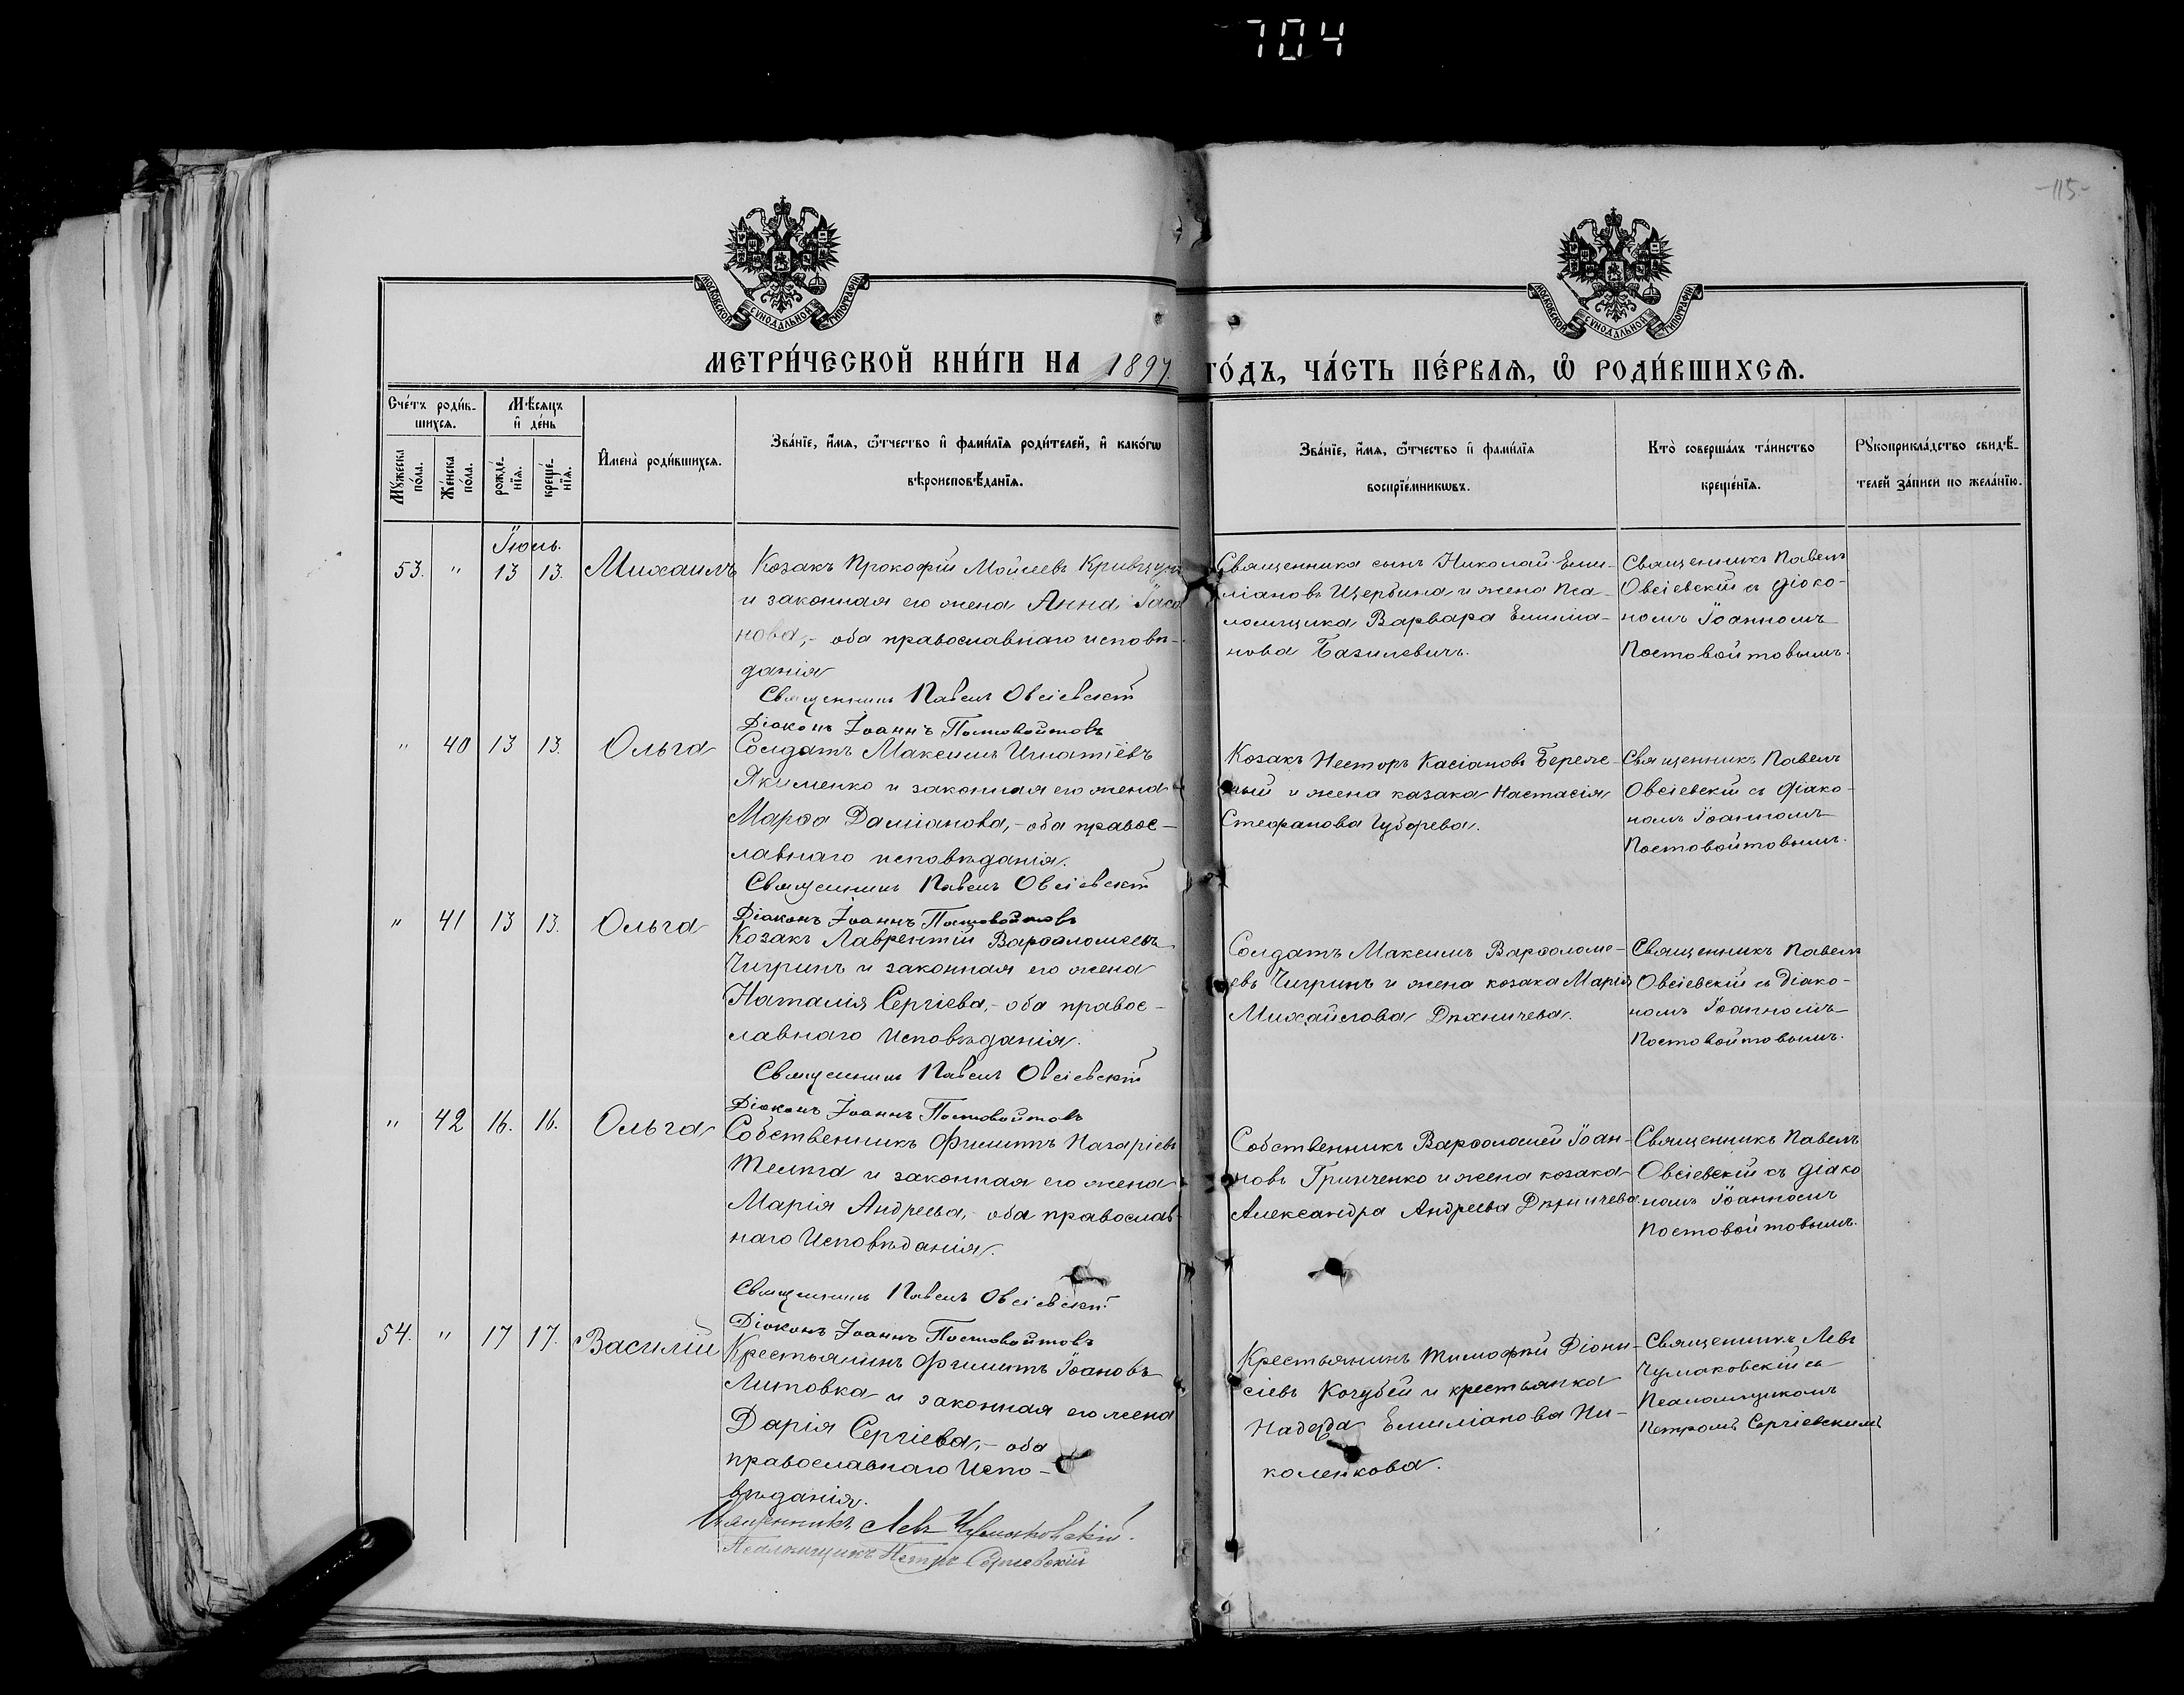 704
-115-
МОСКОВСКОЙ СѴНОДАЛЬНОЙ ТИПОГРАФІИ
МОСКОВСКОЙ СѴНОДАЛЬНОЙ ТИПОГРАФІИ
МЕТРИ́ЧЕСКОЙ КНИ́ГИ НА 1897 ГО́ДЪ, ЧА́СТЬ ПЕ́РВАѦ, Ѽ РОДИ́ВШИХСѦ.
Сче́тъ роди́в-
шихсѧ.
Мꙋ́жеска по́ла.
Же́нска по́ла.
Мѣ́сѧцъ
и҆ де́нь
рожде́-
нїѧ.
креще́-
нїѧ.
И҆мена̀ роди́вшихсѧ.
Зва́нїе, и҆́мѧ, ѻ҆́тчество и҆ фами́лїѧ роди́телей, и҆ како́гѡ
вѣроисповѣ́данїѧ.
Зва́нїе, и҆́мѧ, ѻ҆́тчество и҆ фами́лїѧ
воспрїе́мникѡвъ.
Кто̀ соверша́лъ та́инство
креще́нїѧ.
Рꙋкоприкла́дство свидѣ́-
телей за́писи по жела́нїю.
Іюнь.
53. " 13 13. Михаилъ
Козакъ Прокофій Мойсеевъ
и законная его жена Анна
нова,- оба православнаго исповѣ-
данія
Священникъ Павелъ Овсіевскій
Діаконъ Іоаннъ Постовойтовъ
Священника сынъ Николай Еми-
ліановъ Щербина и жена Пса-
ломщика Варвара Емилiа-
нова Базилевичъ.
Священникъ Павелъ
Овсіевскій съ діако-
номъ Іоанномъ
Постовойтовымъ.
" 40 13 13. Ольга
Солдатъ Максимъ Игнатіевъ
Якименко и законная его жена
Марѳа Даміанова,- оба правос-
лавнаго исповѣданія.
Священникъ Павелъ Овсіевскій
Діаконъ Іоаннъ Постовойтовъ
Козакъ Несторъ Касіановъ Береже-
ный и жена казака Настасія
Стефанова Чубарева.
Священникъ Павелъ
Овсіевскій съ діако-
номъ Іоанномъ
Постовойтовымъ.
" 41 13 13. Ольга
Козакъ Лаврентій Варѳоломеевъ
Чигринъ и законная его жена
Наталія Сергіева,- оба правос-
лавнаго Исповѣданія.
Священникъ Павелъ Овсіевскій
Діаконъ Іоаннъ Постовойтовъ
Солдатъ Максимъ Варѳоломе-
евъ Чигринъ и жена козака Марія
Михайлова
Священникъ Павелъ
Овсіевскій съ діако-
номъ Іоанномъ
Постовойтовымъ.
" 42 16. 16. Ольга
Собственникъ Филиппъ Назаріевъ
и законная его жена
Марія Андреева,- оба православ-
наго Исповѣданія.
Священникъ Павелъ Овсіевскій
Діаконъ Іоаннъ Постовойтовъ
Собственникъ Варѳоломей Іоан-
новъ Гринченко и жена козака
Александра Андреева
Священникъ Павелъ
Овсіевскій съ діако
номъ Іоанномъ
Постовойтовымъ.
54. " 17 17. Василій
Крестьянинъ Филиппъ Іоановъ
Литовка и законная его жена
Дарія Сергіева,- оба
православнаго Испо-
вѣданія.
Священникъ Левъ Чумаковскій.
Псаломщикъ Петръ Сергіевскій
Крестьянинъ Тимофей Діони-
сіевъ Кочубей и крестьянка
Надежда Емиліанова Ни-
коленкова.
Священникъ Левъ
Чумаковскій съ
Псаломщикомъ
Петромъ Сергіевскимъ